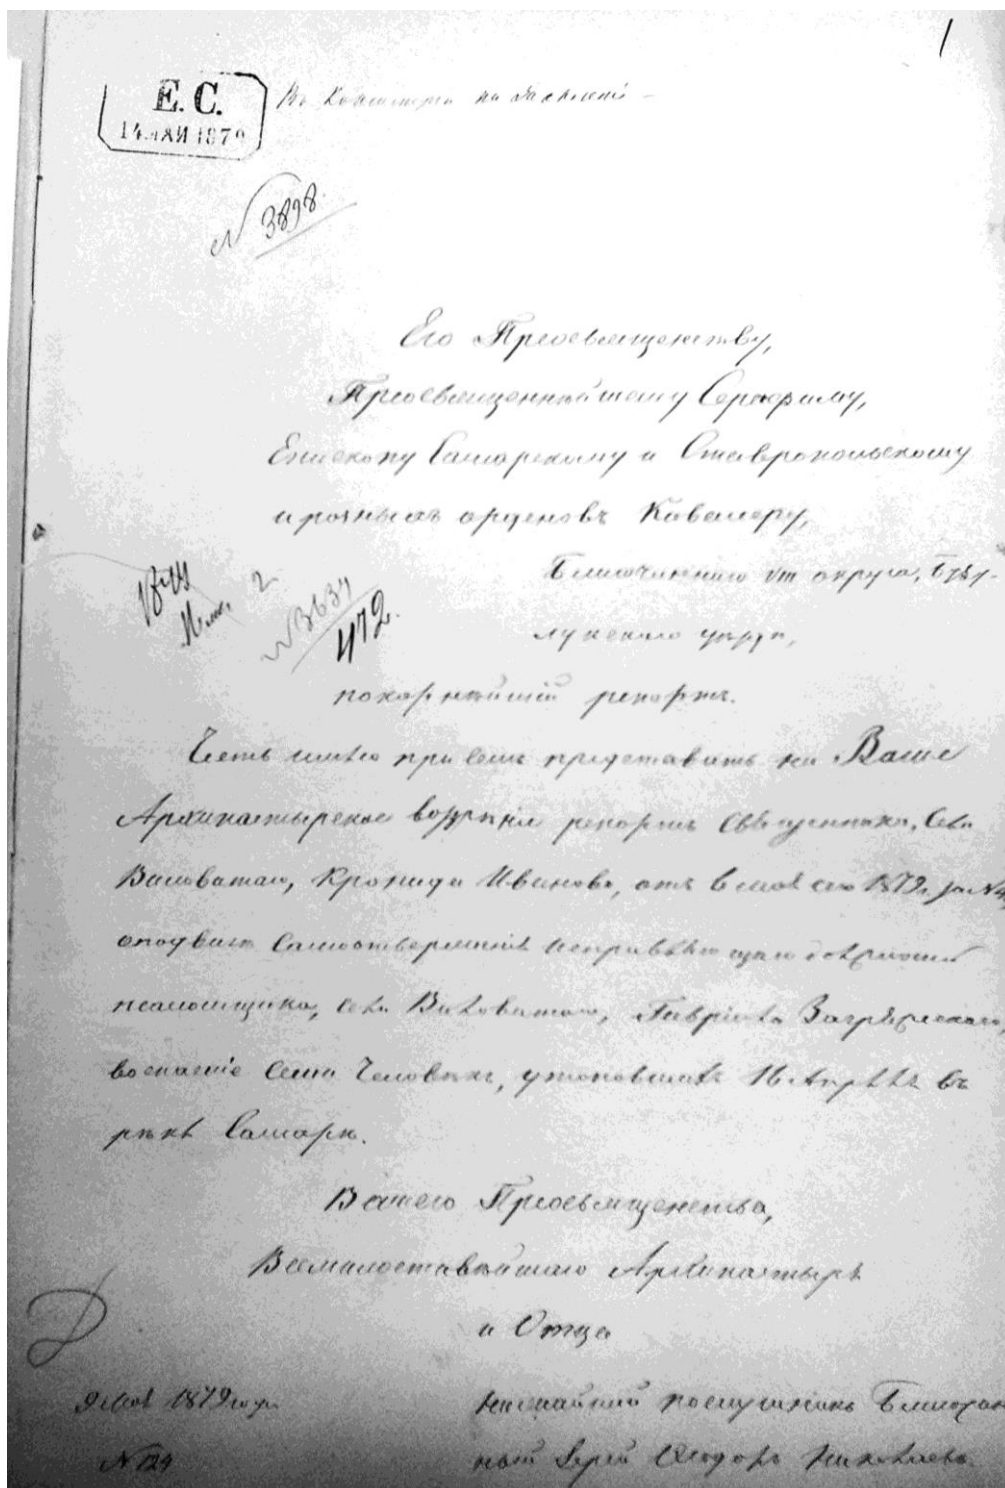 1
Е. С.
14 МАЙ 1879
Въ Консисторію
№ 3898.
Его Преосвященству,
Преосвященнѣйшему Серафиму,
Епископу Самарскому и Ставропольскому
и розныхъ орденовъ Кавалеру,
Благочиннаго VIII округа, Бузу-
лукскаго уѣзда,
2
№ 3634
472.
покорнѣйшій репортъ.
Честь имѣю при семъ представить на Ваше
Архипастырское воззрѣніе репортъ Священника, Села
Виловатаго, Кронида Иванова, отъ 6 мая сего 1879 г. за № 4,
о подвигѣ Самоотверженія исправляющаго должность
псаломщика, села Виловатаго, Гавріила Загрязскаго,
во спасеніе семи Человѣкъ, утопавшихъ 16 Апрѣля въ
рѣкѣ Самарѣ.
Вашего Преосвященства,
Всемилостивѣйшаго Архипастыря
и Отца
9 Мая 1879 года
№ 124
нижайшій послушникъ Благочин-
ный Іерей Ѳеодоръ Николаевъ.